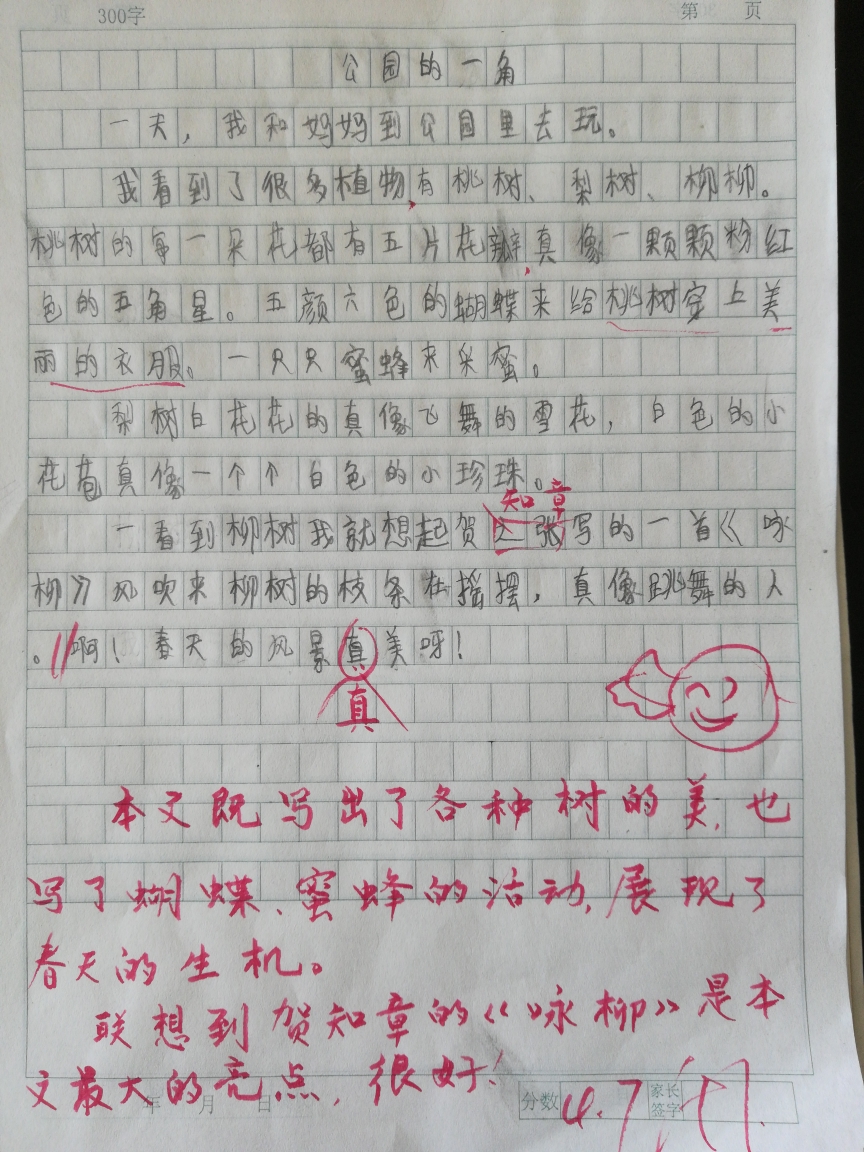 300字
第 页
公园的一角
一天，我和妈妈到公园里去玩。
我看到了很多植物，有桃树、梨树、柳柳。
桃树的每一朵花都有五片花瓣，真像一颗颗粉红
色的五角星。五颜六色的蝴蝶来给桃树穿上美
丽的衣服。一只只蜜蜂来采蜜。
梨树白花花的真像飞舞的雪花，白色的小
花苞真像一个个白色的小珍珠。
知章
一看到柳树我就想起贺之张写的一首《咏
柳》风吹来柳树的枝条在摇摆，真像跳舞的人
。啊！春天的风景真美呀！
真
本文既写出了各种树的美，也
写了蝴蝶、蜜蜂的活动，展现了
春天的生机。
联想到贺知章的《咏柳》是本
文最大的亮点，很好！
年 月 日
分数 4.7
家长
签字